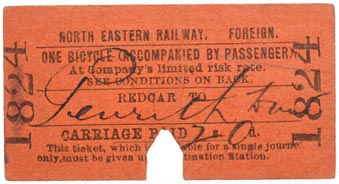 NORTH EASTERN RAILWAY, FOREIGN.
ONE BICYCLE (ACCOMPANIED BY PASSENGER).
At Company's limited risk rate.
SEE CONDITIONS ON BACK.
REDCAR TO
Penrith
CARRIAGE P ID 2 0 d.
This ticket, which i able for a single journe
only, must be given up tination Station.
1824
1824